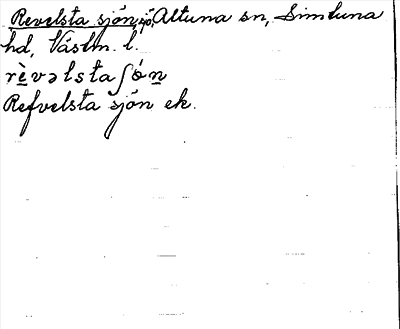 Revelsta sjön, sjö, Altuna sn, Simtuna
hd, Västm. l.
rèvəlstaʃón
Refvelsta sjön ek.